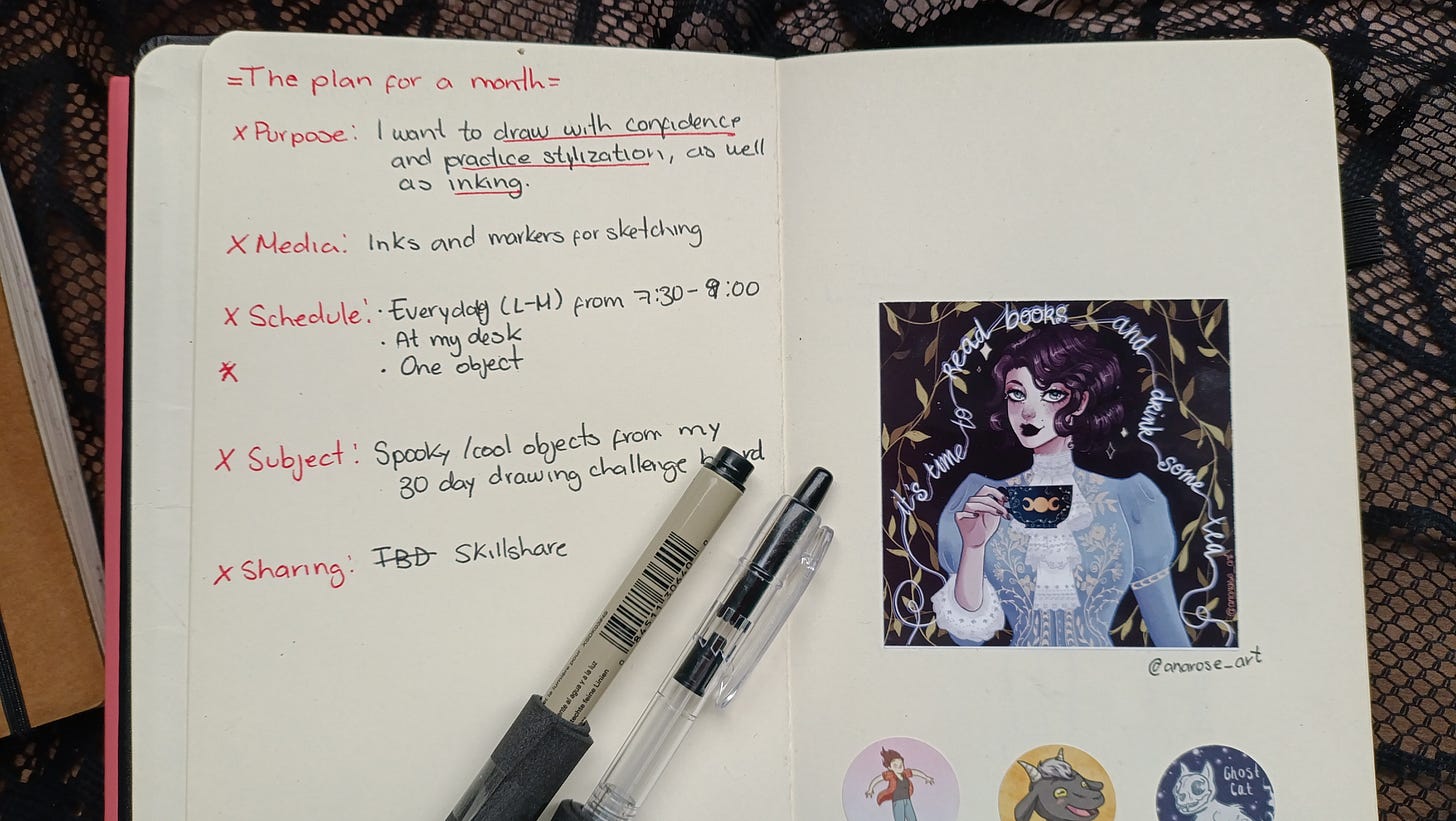 =The plan for a month=
x Purpose: I want to draw with confidence
and practice stylization, as well
as inking.
x Media: Inks and markers for sketching
x Schedule: · Everyday (L-M) from 7:30-9:00
· At my desk
x · One object
x Subject: Spooky /cool objects from my
30 day drawing challenge
x Sharing: TBD Skillshare
it's time to read books and drink some tea
@anarose_art
Ghost
Cat